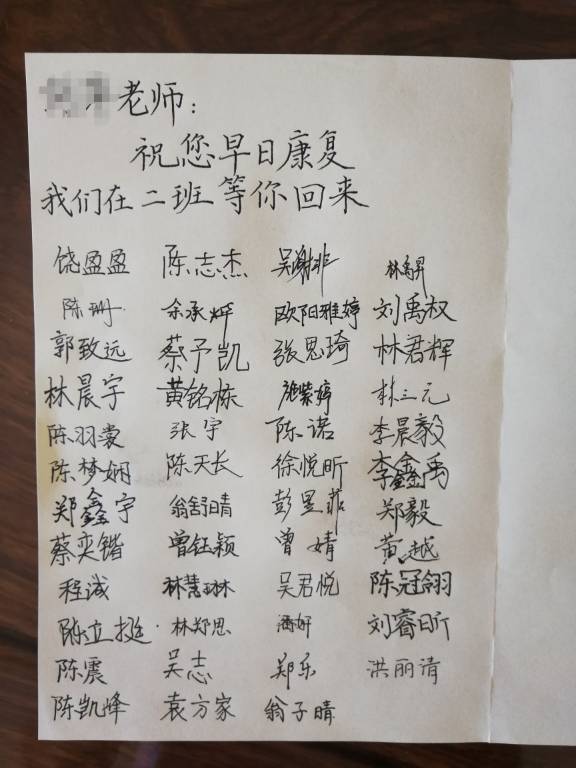 老师：
祝您早日康复
我们在二班等你回来
饶盈盈 陈志杰 吴谢非 林禹昇
陈珊 余承烨 欧阳雅婷 刘禹权
郭致远 蔡予凯 张思琦 林君辉
林晨宇 黄铭栋 施紫婷 林三元
陈羽裳 张宇 陈诺 李晨毅
陈梦娴 陈天长 徐悦昕 李鑫禹
郑鑫宇 翁舒晴 彭昱菲 郑毅
蔡奕锴 曾钰颖 曾婧 黄越
程诚 林慧琳 吴君悦 陈冠翎
陈立挺 林郑思 刘睿昕
陈震 吴志 郑乐 洪丽清
陈凯烽 袁方家 翁子晴